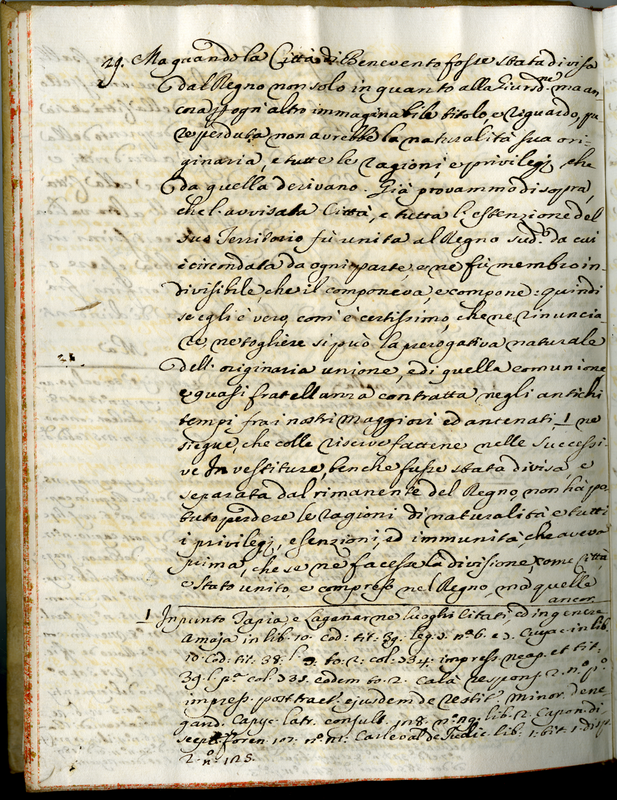 29. Ma quando la Città di Benevento fosse stata divisa
dal Regno non solo in quanto alla Giurisd.ne ma an
cora p ogn'altro immaginabile titolo, e riguardo, pu
re perduta non avrebbe la naturalità sua ori
ginaria, e tutte le ragioni, e privilegj, che
da quella derivano. Già provammo di sopra,
che l'avvisata Città, e tutta l'estenzione del
suo Territorio fù unita al Regno sud.o da cui
è circondata da ogni parte, e ne fù membro in
divisibile, che il componeva, e compone: quindi
se egli è vero, com'è certissimo, che ne rinuncia
re, ne togliere si può la prerogativa naturale
dell'originaria unione, e di quella comunione
e quasi fratellanza contratta negli antichi
tempi fra i nostri Maggiori ed antenati 1 ne
siegue, che colle riserve fattene nelle successi
ve Investiture, benche fusse stata divisa, e
separata dal rimanente del Regno, non hà po
tuto perdere le ragioni di naturalità e tutti
i privilegj, esenzioni, ed immunità, che aveva
prima, che se ne facesse la divisione, come Città,
e Stato unito, e compreso nel Regno, mà quelle
ancor
1 In punto Tapia, e Laganar ne luoghi citati, ed in genere
amaja in lib. 10. Cod: tit: 39. leg. 3. n.o 6. e Cujac. in lib.
10. Cod. tit. 38. l. to: 2: col: 334. impress. neap. et tit:
39. l. p.a col. 335. eodem to. 2. Cala respons. 2. n.o p.o
impress. post tract. ejusdem de restit. minor. dene
gand. Capyc. latr. consult. 108. n.o 99. lib. 2. Capon. di
scept. foren. 107. n.o 11. Carleval de Judic. lib. 1. tit. 1. disp.
2. n.o 125.